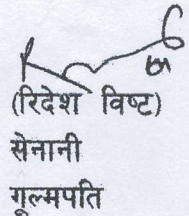 (रिदेश विष्ट)
सेनानी
गूल्मपति